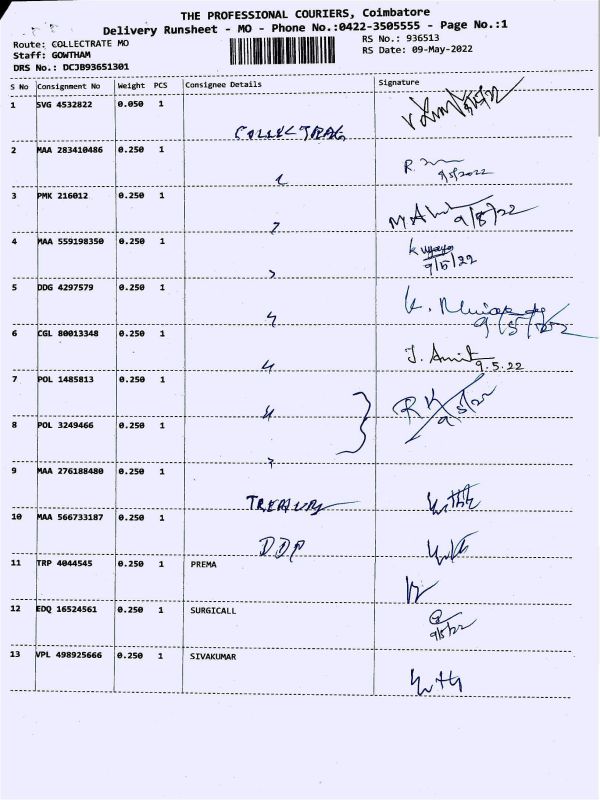 THE PROFESSIONAL COURIERS, Coimbatore
Delivery Runsheet - MO - Phone No.:0422-3505555 - Page No.:1
Route: COLLECTRATE MO RS No.: 936513
Staff: GOWTHAM RS Date: 09-May-2022
DRS No.: DCJB93651301
S No Consignment No Weight PCS Consignee Details Signature
1 SVG 4532822 0.050 1
2 MAA 283410486 0.250 1
9/5/2022
3 PMK 216012 0.250 1
4 MAA 559198350 0.250 1
9/5/22
5 DDG 4297579 0.250 1
6 CGL 80013348 0.250 1
J. Amit
9.5.22
7 POL 1485813 0.250 1
RK
8 POL 3249466 0.250 1
9 MAA 276188480 0.250 1
10 MAA 566733187 0.250 1
11 TRP 4044545 0.250 1 PREMA
12 EDQ 16524561 0.250 1 SURGICALL
9/5/22
13 VPL 498925666 0.250 1 SIVAKUMAR